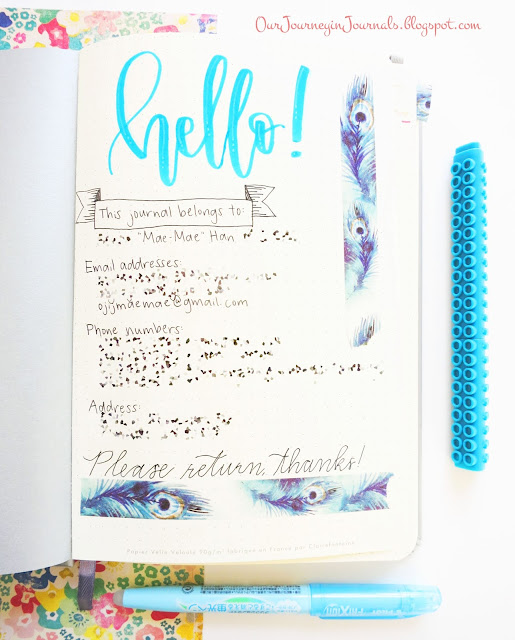 OurJourneyinJournals.blogspot.com
hello!
This journal belongs to:
"Mae-Mae" Han
Email addresses:
ojijmaemae@gmail.com
Phone numbers:
Address:
Please return, thanks!
Papier Vélin Velouté 90g/m² fabriqué en France par Clairefontaine